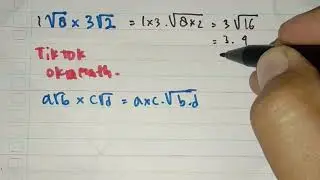 1√8 × 3√2 = 1×3.√8×2 = 3√16
= 3. 4
TikTok
okamath.
a√b × c√d = a×c.√b.d